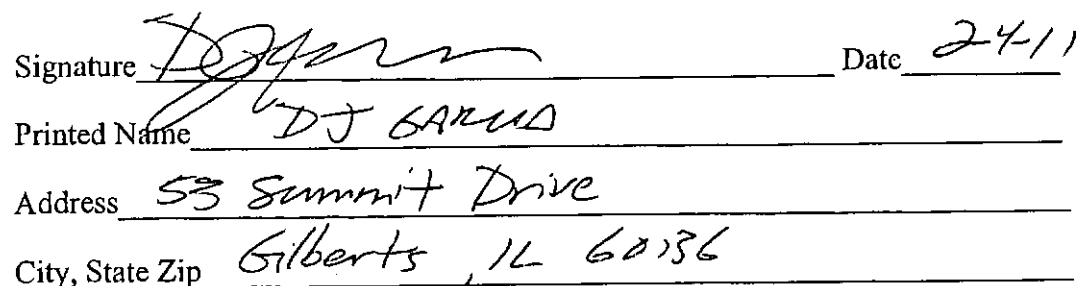 Signature Date 2-4-11
Printed Name DJ GARCIA
Address 53 Summit Drive
City, State Zip Gilberts, IL 60136